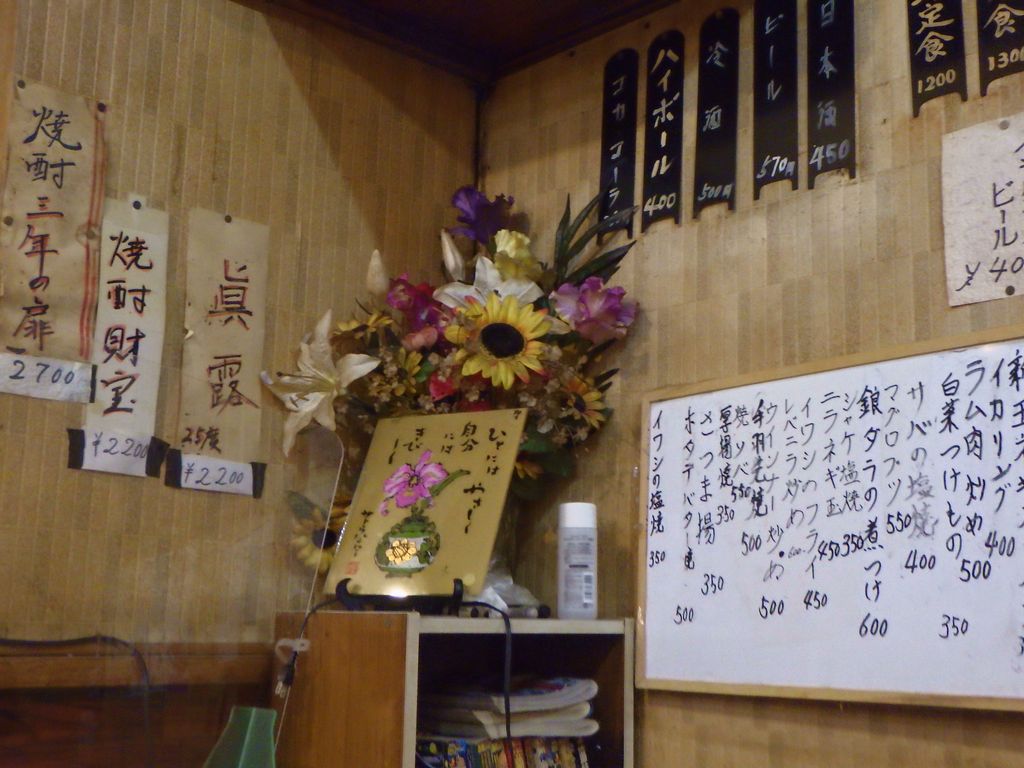 焼酎三年の扉
2700
焼酎財宝
¥2200
眞露
25度
¥2200
ひとには
やさしく
自分
には
きびしく
コカコーラ
ハイボール
400
冷酒
500円
ビール
570円
日本酒
450
定食
1200
食
1300
ビール
¥40
イカリング
400
ラム肉炒め
500
白菜つけもの
350
サバの塩焼
400
マグロブツ
550
銀ダラの煮つけ
600
シャケ塩焼
350
ニラネギ玉
450
イワシのフライ
450
レバニラ炒め
600
ウインナー炒め
500
手羽先焼
500
焼ソバ
550
厚揚焼
350
さつま揚
350
ホタテバター焼
500
イワシの塩焼
350